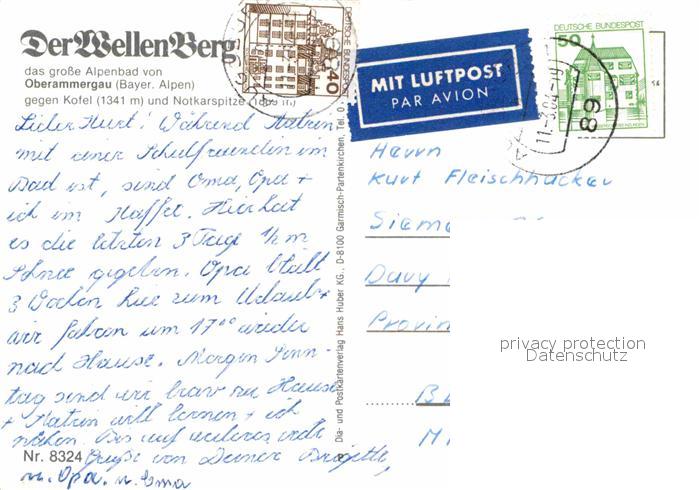 Der WellenBerg
das große Alpenbad von
Oberammergau (Bayer. Alpen)
gegen Kofel (1341 m) und Notkarspitze (1889 m)
Lieber Kurt! Während Katrin
mit einer Schulfreundin im
Bad ist, sind Oma, Opa +
ich im Kaffee. Hier hat
es die letzten 3 Tage ½ m
Schnee gegeben. Opa bleibt
3 Wochen hier zum Urlaub +
wir fahren um 17⁰⁰ wieder
nach Hause. Morgen Sonn-
tag sind wir brav zu Hause
+ Katrin will lernen + ich
nähen. Bis auf weiteres viele
Nr. 8324 Grüße von Deiner Brigitte,
u. Opa. u. Oma
Dia- und Postkartenverlag Hans Huber KG., D-8100 Garmisch-Partenkirchen, Tel. 0
40
DEUTSCHE BUNDESPOST
MIT LUFTPOST
PAR AVION
DEUTSCHE BUNDESPOST
50
11.3.84-19
68
Herrn
Kurt Fleischhucker
Siem
Davy
Provin
B
M
privacy protection
Datenschutz